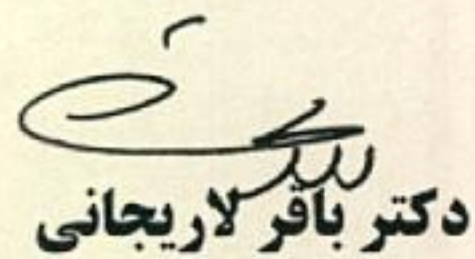 دکتر باقر لاریجانی